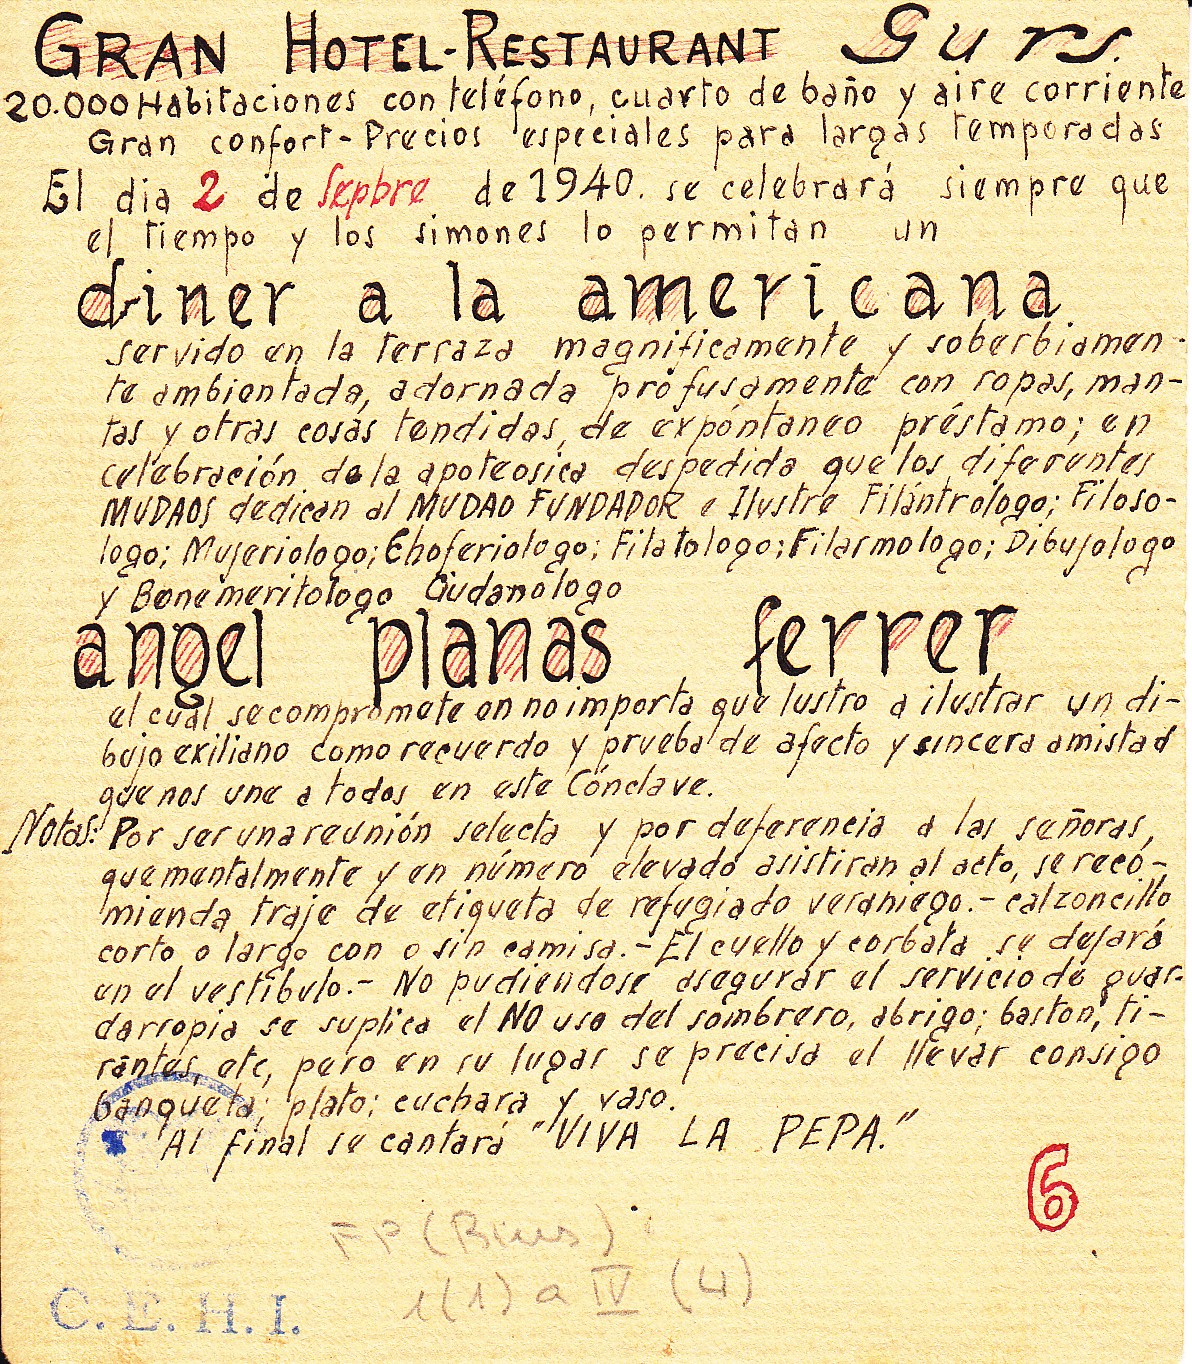 GRAN HOTEL-RESTAURANT Gurs.
20.000 Habitaciones con teléfono, cuarto de baño y aire corriente
Gran confort-Precios especiales para largas temporadas
El dia 2 de Sepbre de 1940. se celebrará siempre que
el tiempo y los simones lo permitan un
diner a la americana
servido en la terraza magnificamente y soberbiamen-
te ambientada, adornada profusamente con ropas, man-
tas y otras cosas tendidas, de expóntaneo préstamo; en
celebración de la apoteosica despedida que los diferentes
MUDAOS dedican al MUDAO FUNDADOR e Ilustre Filántrologo; Filoso-
logo; Mujeriologo; Choferiologo; Filatologo; Filarmologo; Dibujologo
y Benemeritologo Gudanologo
angel planas ferrer
el cual se compromete en no importa que lustro a ilustrar un di-
bujo exiliano como recuerdo y prueba de afecto y sincera amistad
que nos une a todos en este Cónclave.
Notas: Por ser una reunión selecta y por deferencia a las señoras,
que mentalmente y en número elevado asistiran al acto, se reco-
mienda traje de etiqueta de refugiado veraniego.- calzoncillo
corto o largo con o sin camisa.- El cuello y corbata se dejará
en el vestíbulo.- No pudiendose asegurar el servicio de guar-
darropia se suplica el NO uso del sombrero, abrigo; baston, ti-
rantes, etc, pero en su lugar se precisa el llevar consigo
banqueta; plato; cuchara y vaso.
Al final se cantará "VIVA LA PEPA."
6
FP (Bius)
1(1) a IV (4)
C. E. H. I.